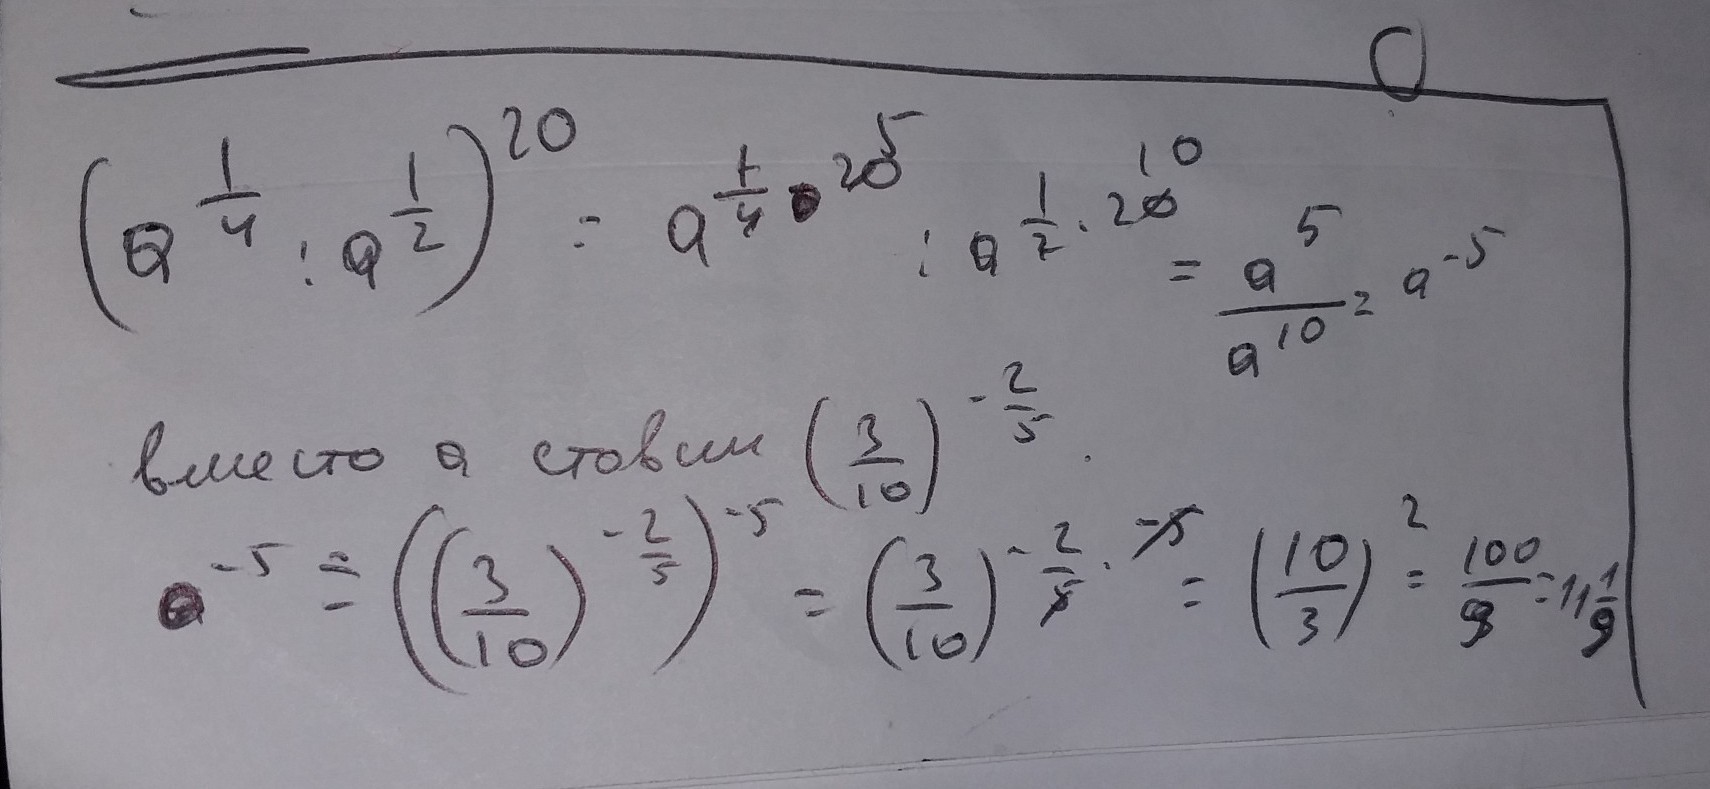 (a^{1/4} : a^{1/2})^{20} = a^{1/4 · 20 5} : a^{1/2 · 20 10} = a^5/a^{10} = a^{-5}
вместо a ставим (3/10)^{-2/5}.
a^{-5} = ((3/10)^{-2/5})^{-5} = (3/10)^{-2/5 · -5} = (10/3)^2 = 100/9 = 11 1/9